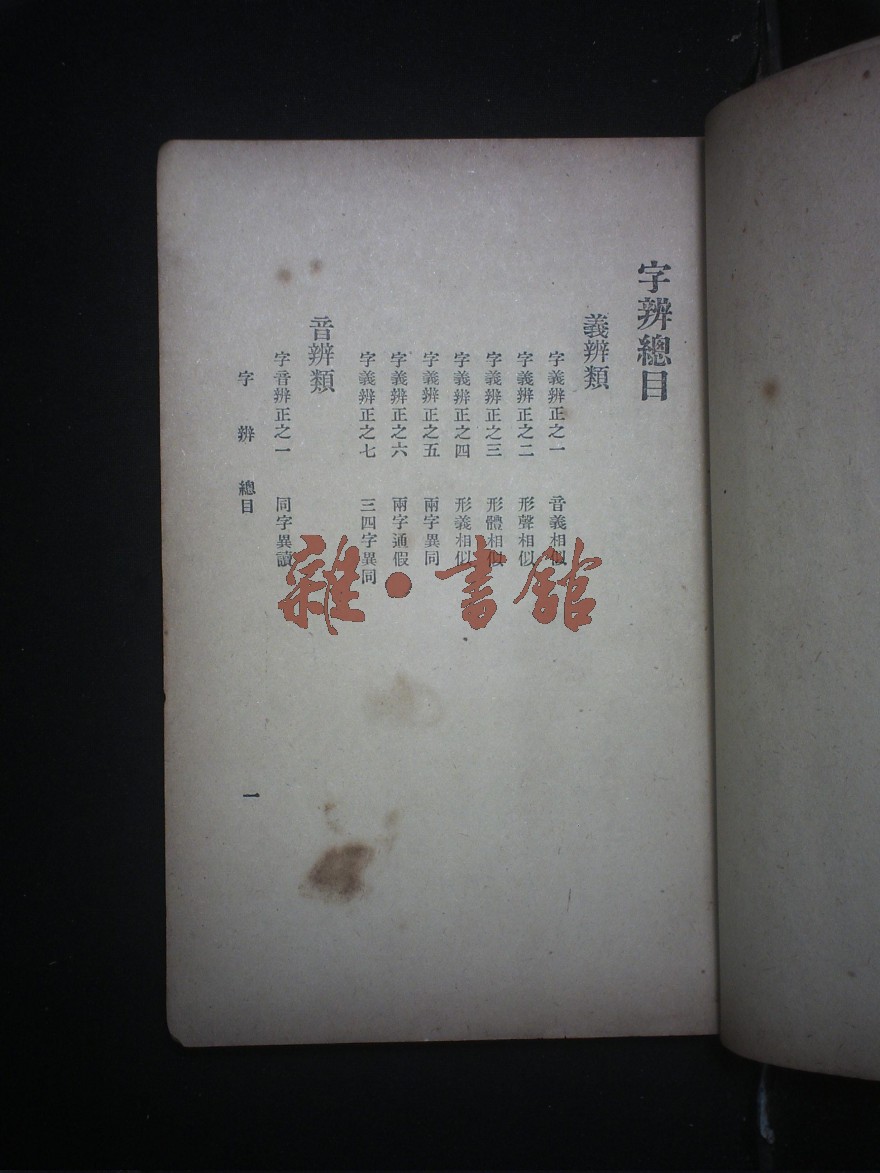 字辨總目
義辨類
字義辨正之一　音義相似
字義辨正之二　形聲相似
字義辨正之三　形體相似
字義辨正之四　形義相似
字義辨正之五　兩字異同
字義辨正之六　兩字通假
字義辨正之七　三四字異同
音辨類
字音辨正之一　同字異讀
字辨　總目　一
雜·書館